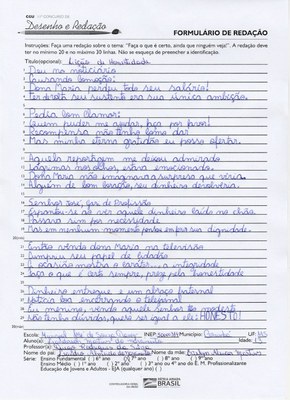 CGU 11º CONCURSO DE
Desenho e Redação
FORMULÁRIO DE REDAÇÃO
Instruções: Faça uma redação sobre o tema "Faça o que é certo, ainda que ninguém veja". A redação deve
ter no mínimo 20 e no máximo 30 linhas. Não se esqueça de preencher a identificação.
Título(opcional): Lição de Honestidade
Deu no noticiário
Causando comoção:
Dona Maria perdeu todo seu salário!
Ter direito seu sustento era sua única ambição.
Pedia com clamor:
Quem puder me ajudar, faça por favor!
Recompensa não tenho como dar
Mas minha eterna gratidão eu posso ofertar.
Aquela reportagem me deixou admirado
Lágrimas nos olhos, estava emocionado.
Dona Maria não imaginava a surpresa que viria
Alguém de bom coração, seu dinheiro devolveria.
Senhor José, gari de profissão
Espantou-se ao ver aquele dinheiro caído no chão.
Passava sim por necessidade
Mas em nenhum momento pensou em ferir sua dignidade.
Então vendo dona Maria na televisão
Cumpriu seu papel de cidadão
A ocasião mostra o caráter... a integridade
Faça o que é certo sempre, preze pela honestidade
Dinheiro entregue e um abraço fraternal
Notícia boa encerrando o telejornal
Eu menino, vendo aquele senhor tão modesto
Não tenho dúvidas, quero ser igual a ele: HONESTO!
Escola:
INEP
Município:
UF: MS
Aluno(a):
Idade: 13
Professor(a):
Nome do pai:
Nome da mãe:
Série: Ensino Fundamental ( ) 6º ano ( ) 7º ano ( ) 8º ano ( ) 9º ano
Ensino Médio ( ) 1º ano ( ) 2º ano ( ) 3º ano ou ao 4º ano do E. M. Profissionalizante
Educação de Jovens e Adultos - EJA (qualquer ano) ( )
BRASIL